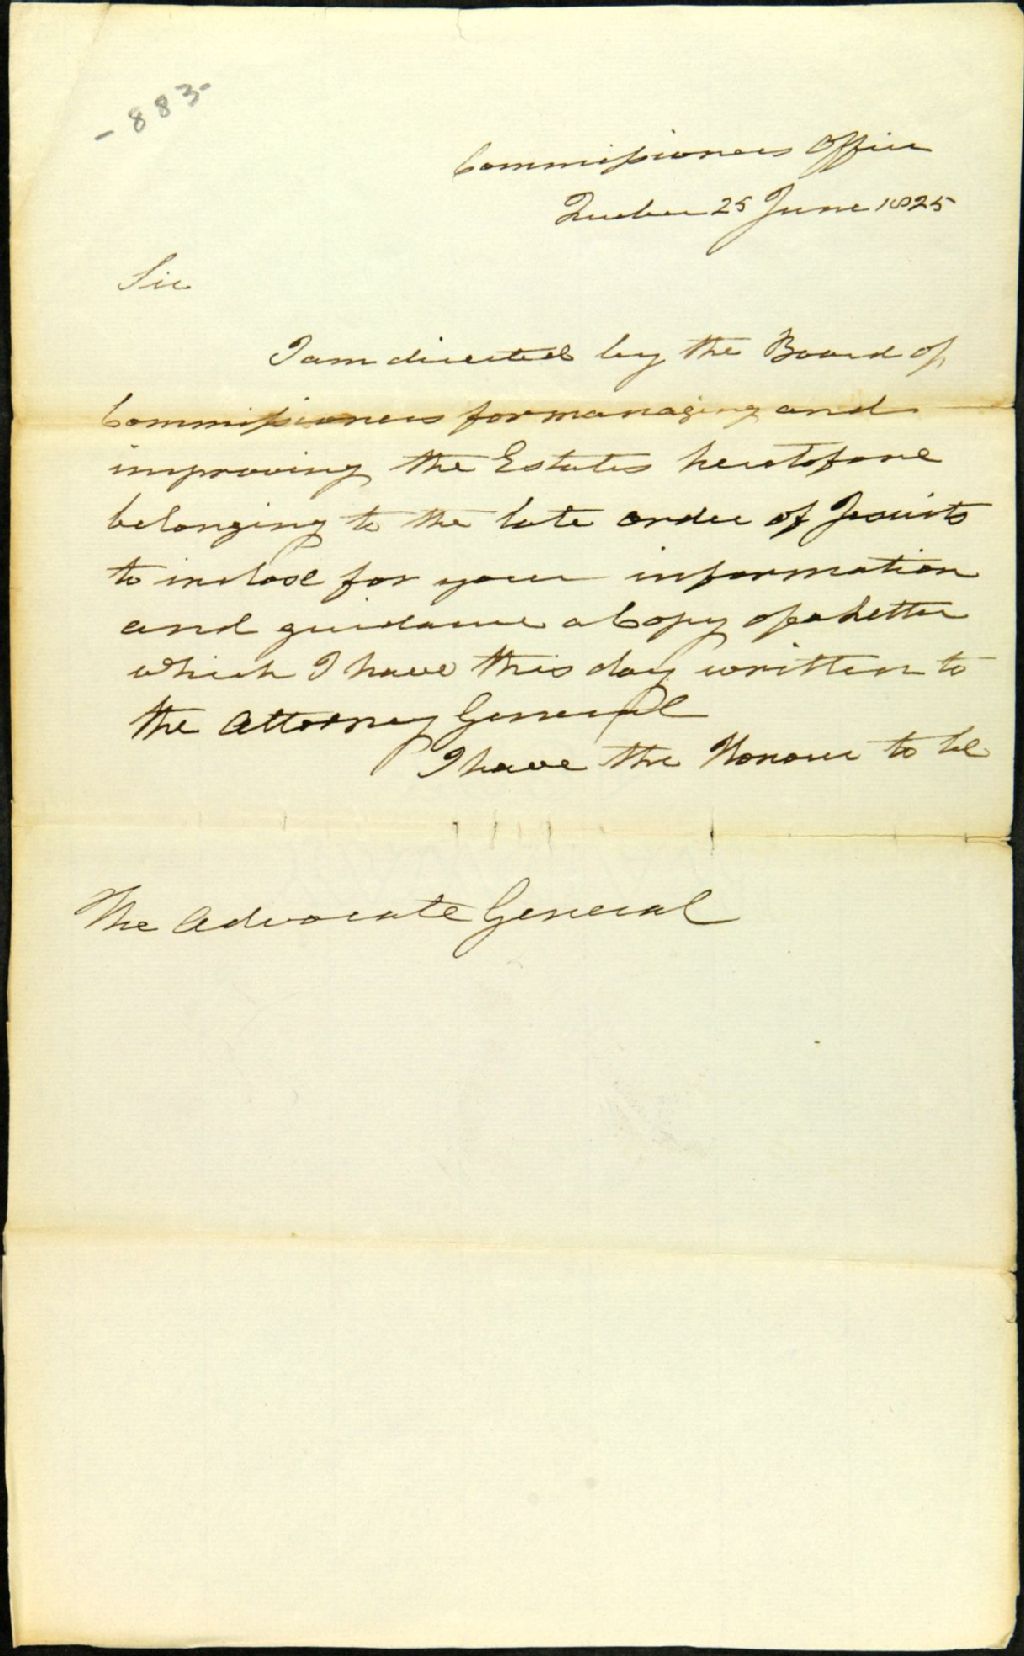 - 883 -
Commissioners Office
Quebec 25 June 1825
Sir
I am directed by the Board of
Commissioners for managing and
improving the Estates heretofore
belonging to the late order of Jesuits
to inclose for your information
and guidance a Copy of a Letter
which I have this day written to
the Attorney General
I have the Honour to be
The Advocate General